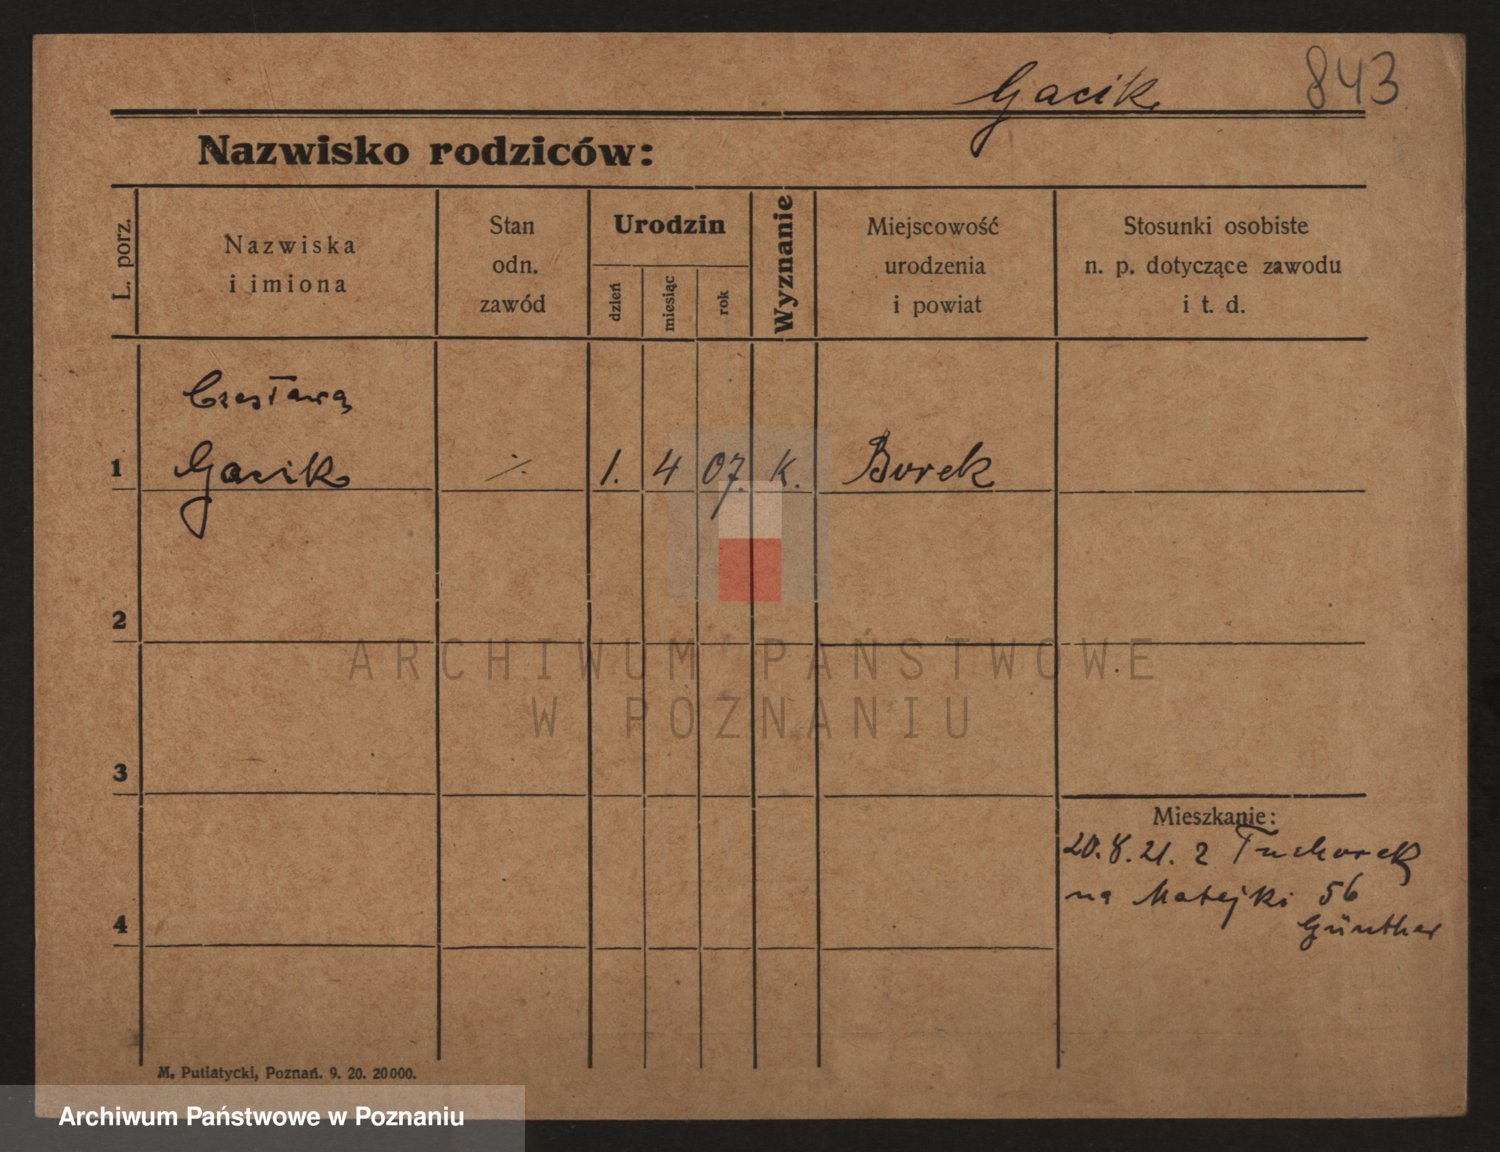 Gacik 843
Nazwisko rodziców:
L. porz.
Nazwiska
i imiona
Stan
odn.
zawód
Urodzin
dzień
miesiąc
rok
Wyznanie
Miejscowość
urodzenia
i powiat
Stosunki osobiste
n. p. dotyczące zawodu
i t. d.
Czesława
1 Gacik ·/. 1. 4 07. K. Borek
2
ARCHIWUM PAŃSTWOWE
W POZNANIU
3
Mieszkanie:
20.8.21. z Tuchorek
na Matejki 56
Günther
4
M. Putiatycki, Poznań. 9. 20. 20000.
Archiwum Państwowe w Poznaniu